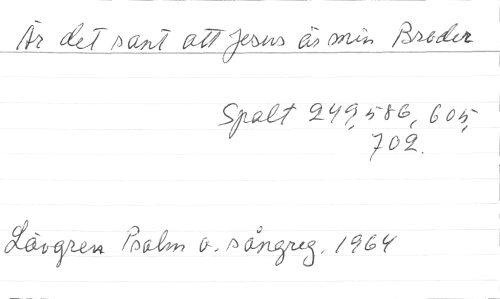 Är det sant att Jesus är min Broder
Spalt 249, 586, 605,
702.
Lövgren Psalm o. sångreg. 1964